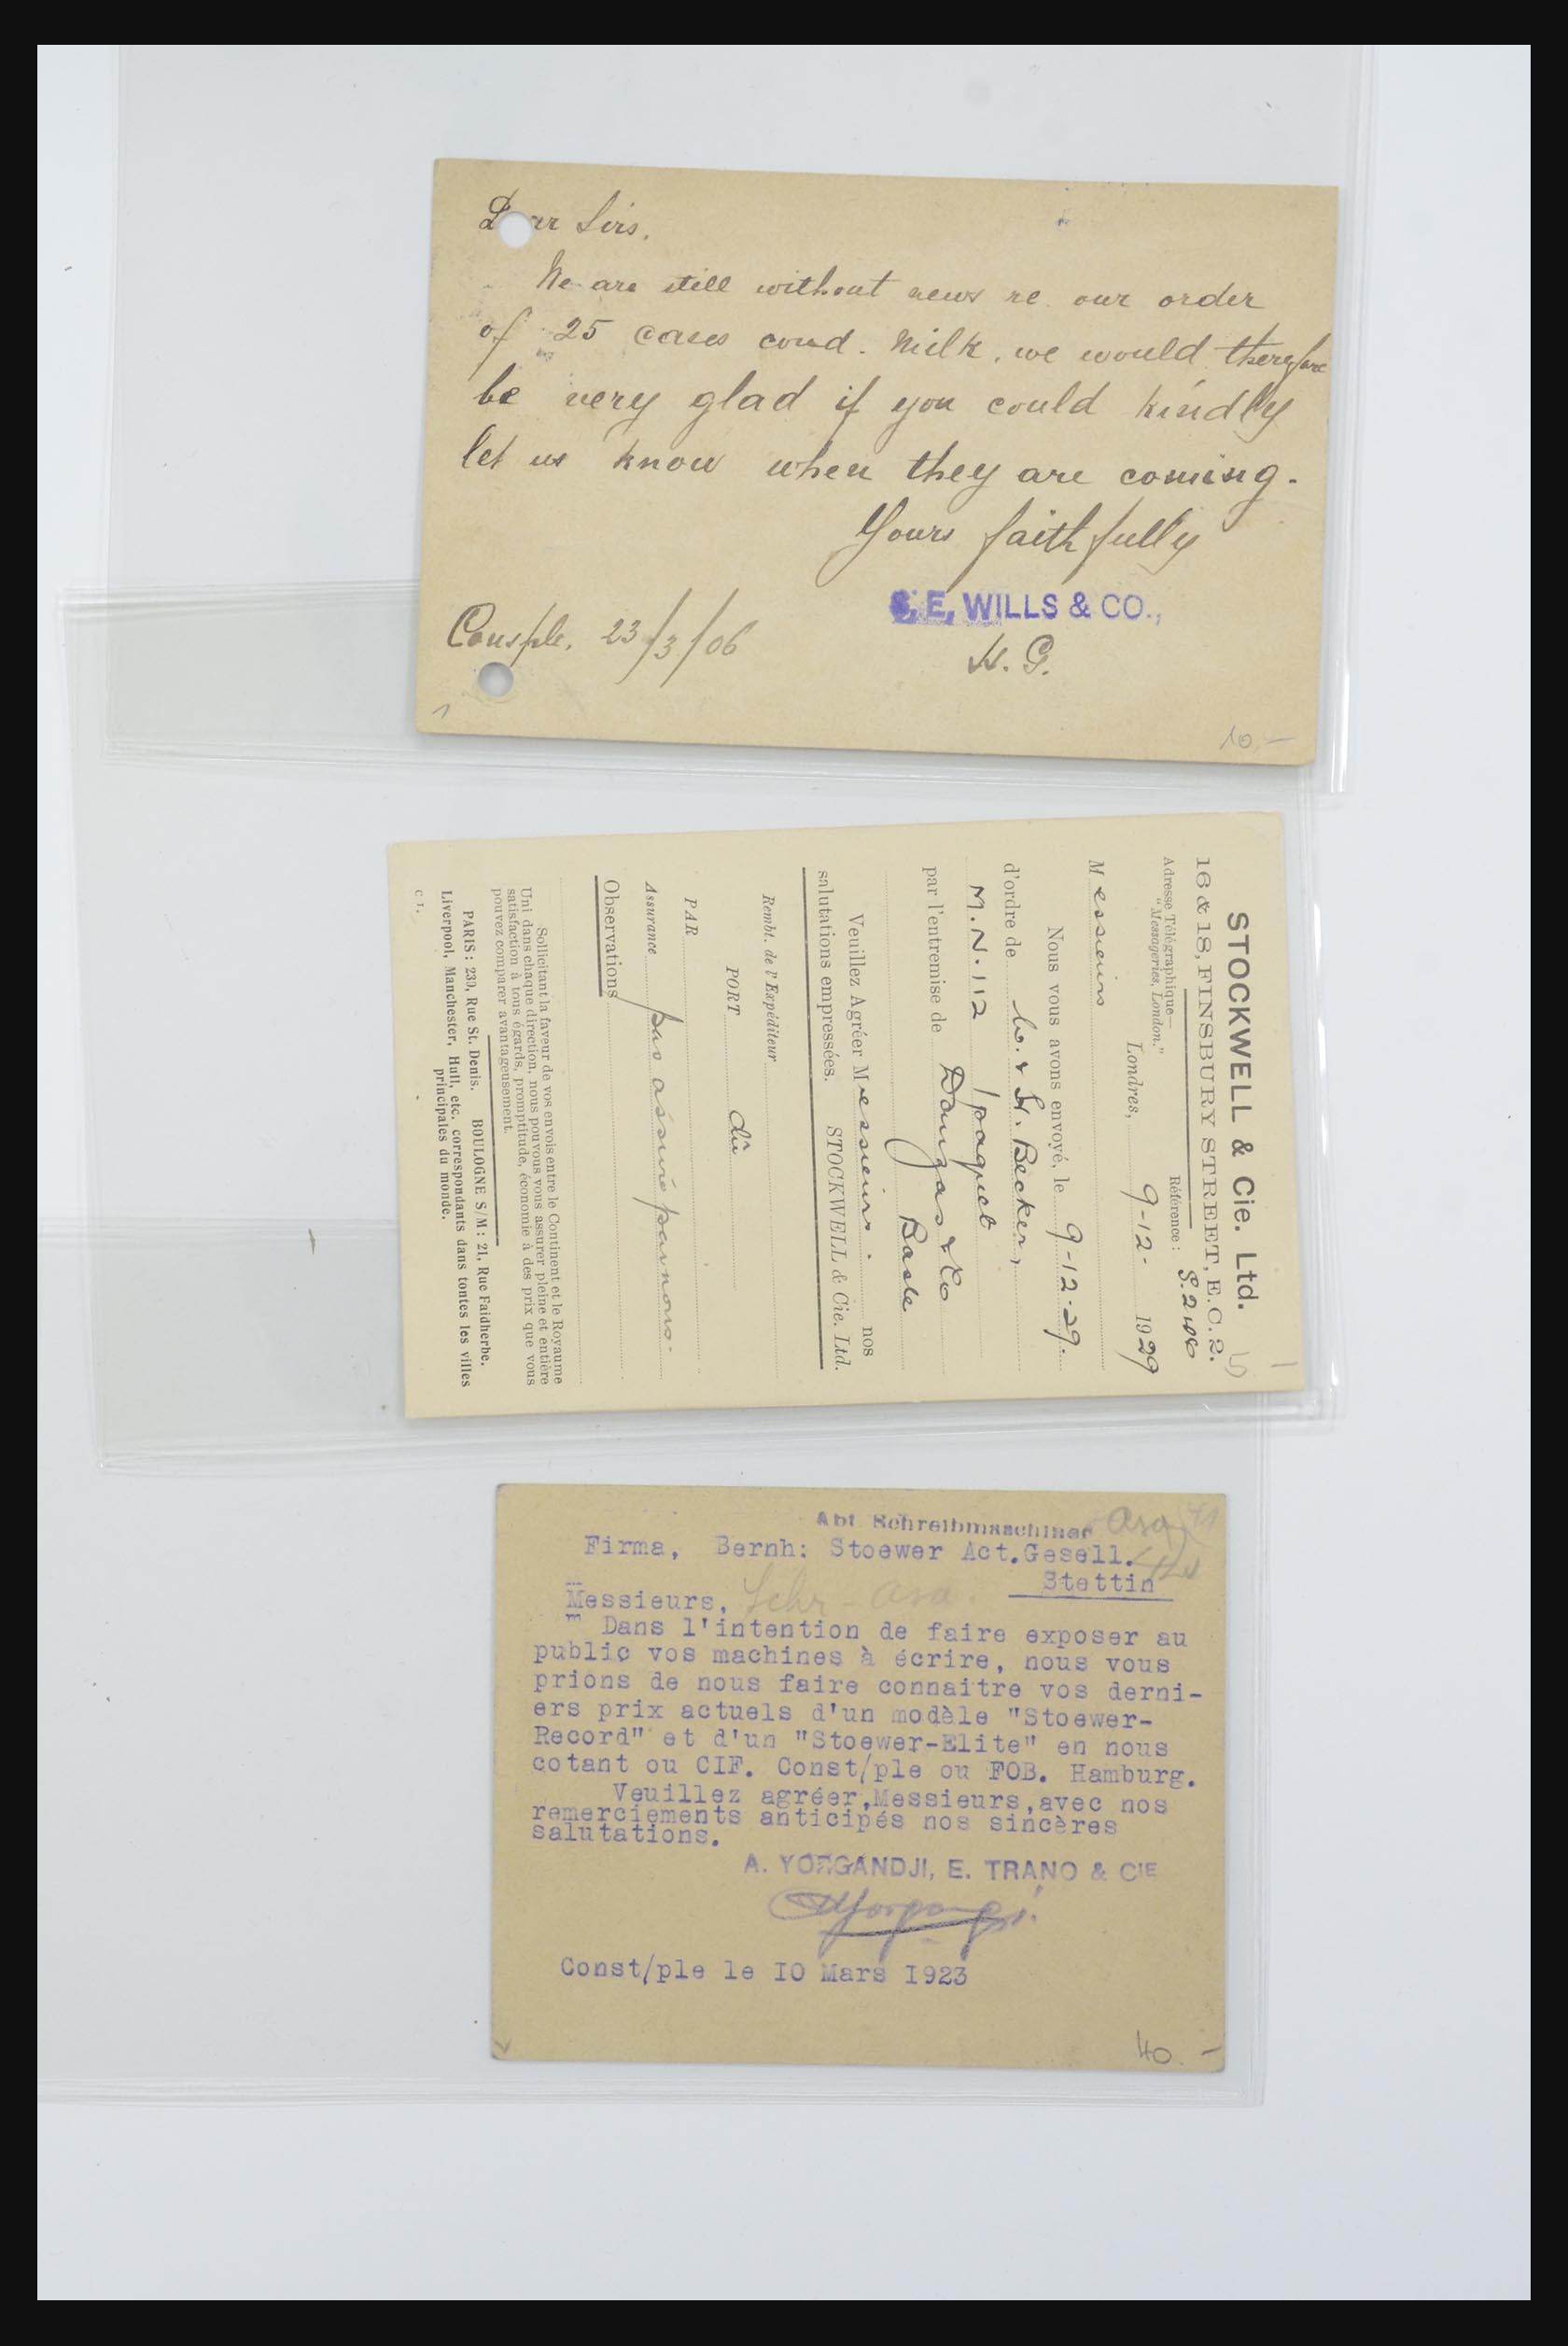 Dear Sirs,
We are still without news re our order
of 25 cases cond. Milk, we would therefore
be very glad if you could kindly
let us know when they are coming.
Yours faithfully
E. WILLS & CO.,
H. G.
Consple. 23/3/06
10.-
STOCKWELL & Cie. Ltd.
16 & 18, FINSBURY STREET, E.C.2.
Adresse Télégraphique—
"Messageries, London."
Référence:
Londres, 9-12- 1929
Messieurs
Nous vous avons envoyé, le 9-12-29.
d'ordre de W. & H. Becker,
M.N. 112 1 paquet
par l'entremise de Danzas & Co
Basle
Veuillez Agréer Messieurs. nos
salutations empressées. STOCKWELL & Cie. Ltd.
Rembt. de l'Expéditeur
PORT dû
PAR
Assurance pas assuré par nous.
Observations
Sollicitant la faveur de vos envois entre le Continent et le Royaume
Uni dans chaque direction, nous pouvons vous assurer pleine et entière
satisfaction à tous égards, promptitude, économie à des prix que vous
pouvez comparer avantageusement.
PARIS: 230, Rue St. Denis. BOULOGNE S/M: 21, Rue Faidherbe.
Liverpool, Manchester, Hull, etc. correspondants dans toutes les villes
principales du monde.
C 1.
Abt Schreibmaschinen
Firma, Bernh: Stoewer Act.Gesell.
Stettin
Messieurs,
Dans l'intention de faire exposer au
public vos machines à écrire, nous vous
prions de nous faire connaitre vos derni-
ers prix actuels d'un modèle "Stoewer-
Record" et d'un "Stoewer-Elite" en nous
cotant ou CIF. Const/ple ou FOB. Hamburg.
Veuillez agréer,Messieurs,avec nos
remerciements anticipés nos sincères
salutations.
A. YORGANDJI, E. TRANO & CIE
Const/ple le IO Mars I923
40.-